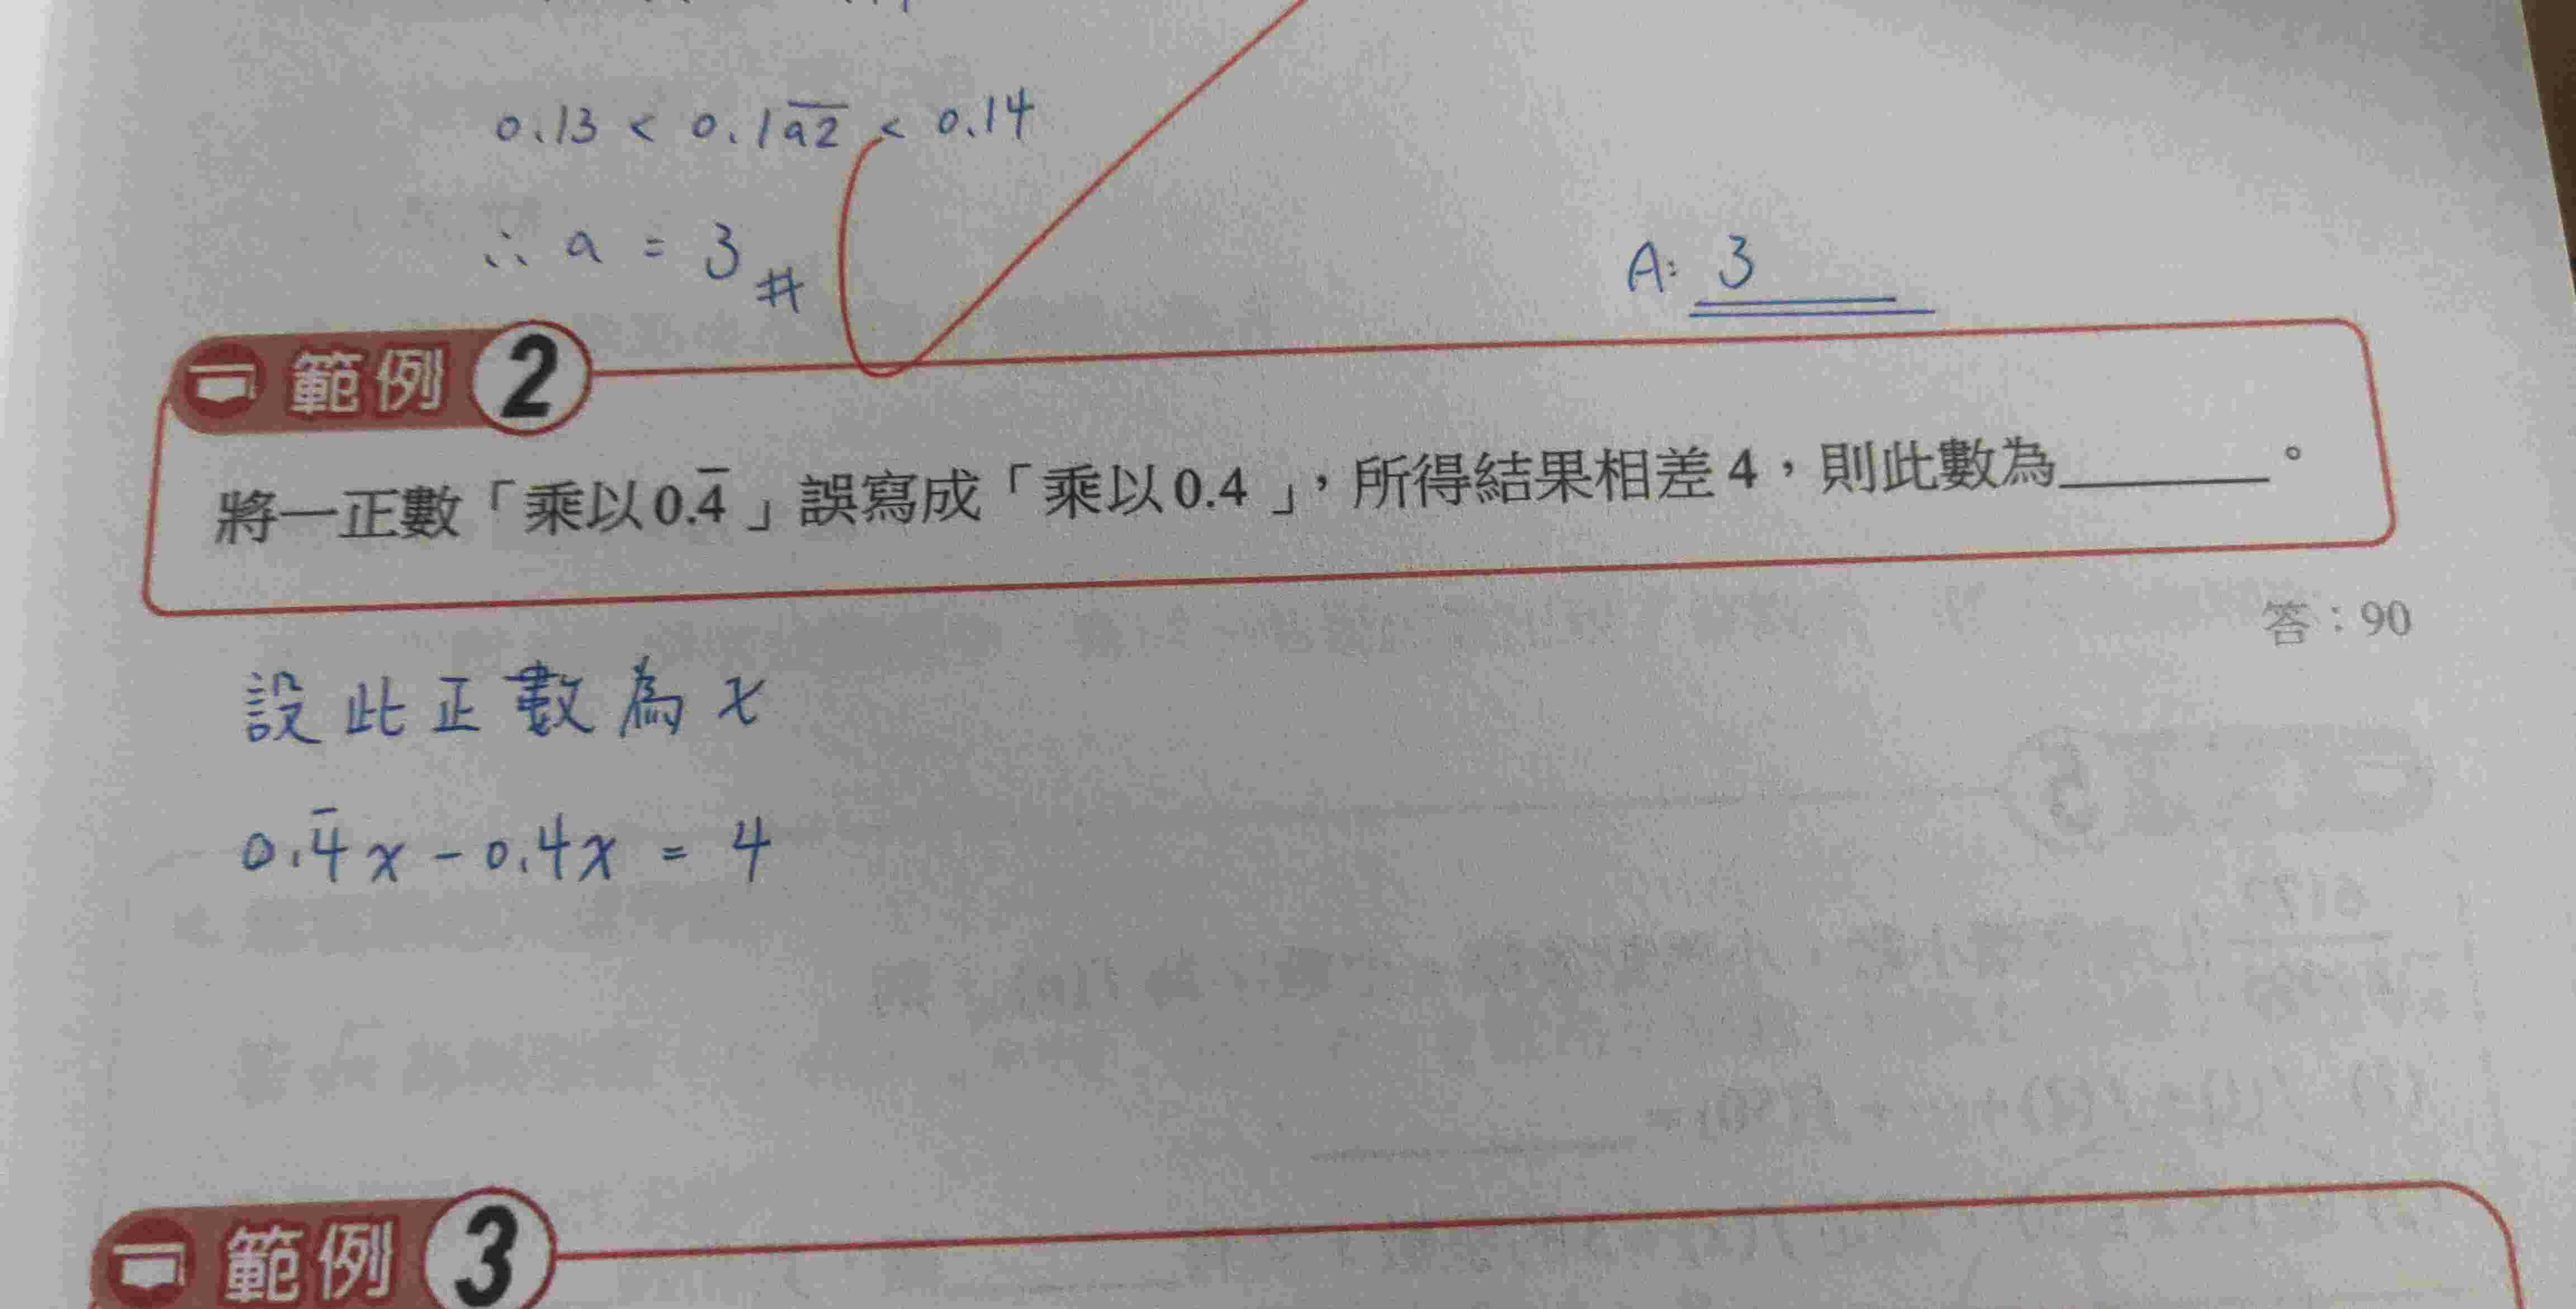 0.13 < 0.1a̅2̅ < 0.14
∴ a = 3 #
A: 3
範例 2
將一正數「乘以 0.4̅ 」誤寫成「乘以 0.4 」，所得結果相差 4，則此數為______。
答：90
設此正數為 x
0.4̅x - 0.4x = 4
範例 3